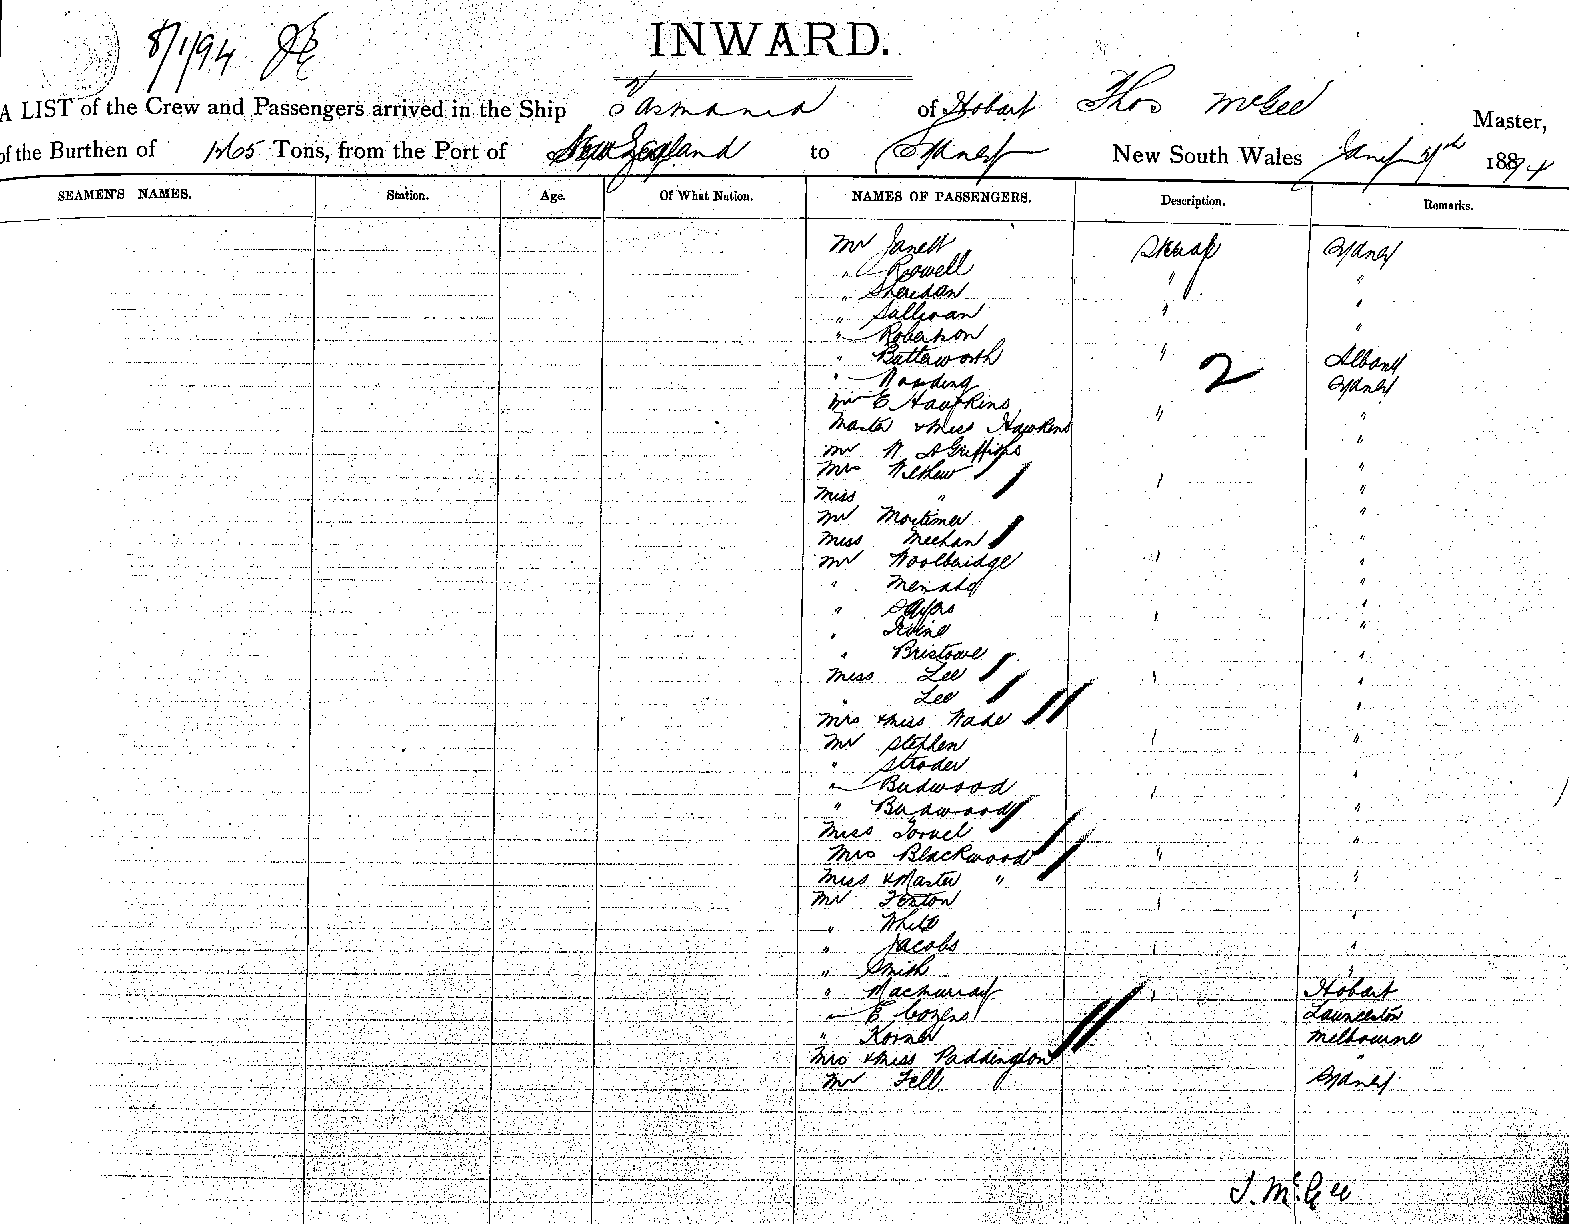 8/1/94
INWARD.
A LIST of the Crew and Passengers arrived in the Ship Tasmania of Hobart Thos McGee Master,
of the Burthen of Tons, from the Port of New Zealand to Sydney New South Wales Jany 1894
SEAMEN'S NAMES. Station. Age. Of What Nation. NAMES OF PASSENGERS. Description. Remarks.
Mr Janett Steerage Sydney
" Rowell " "
" Sheridan " "
" Sullivan "
" Robertson
" Butterworth " Albany
" 2 Sydney
E Hawkins " "
Master & Miss Hawkins "
Mr W A Griffiths "
Mrs "
Miss " "
Mr Mortimer
Miss Meehan "
Mr Woolbridge " "
" "
" " "
" Irvine "
" Bristowe "
Miss Lee " "
" Lee "
Mrs & Miss Wade
Mr Stephen " "
" Stroder "
" Budwood "
" Budwood "
Miss "
Mrs Blackwood "
Miss & Master " "
Mr Fenton "
" White "
" Jacobs " "
" Smith "
" Macmurray " Hobart
" E Cozens Launceston
" Korner Melbourne
Mrs & Miss Paddington "
Mr Fell Sydney
J. McGee